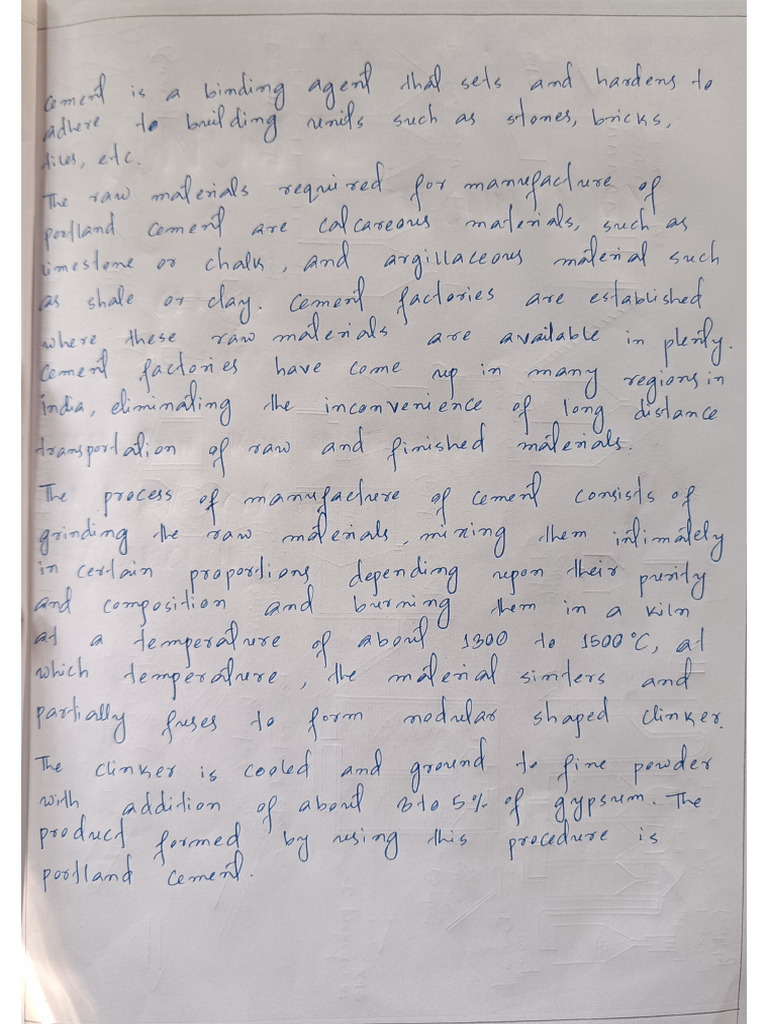 Cement is a binding agent that sets and hardens to
adhere to building units such as stones, bricks,
tiles, etc.
The raw materials required for manufacture of
portland cement are calcareous materials, such as
limestone or chalk, and argillaceous material such
as shale or clay. Cement factories are established
where these raw materials are available in plenty.
Cement factories have come up in many regions in
India, eliminating the inconvenience of long distance
transportation of raw and finished materials.
The process of manufacture of cement consists of
grinding the raw materials, mixing them intimately
in certain proportions depending upon their purity
and composition and burning them in a kiln
at a temperature of about 1300 to 1500°C, at
which temperature, the material sinters and
partially fuses to form nodular shaped clinker.
The clinker is cooled and ground to fine powder
with addition of about 3 to 5% of gypsum. The
product formed by using this procedure is
portland cement.